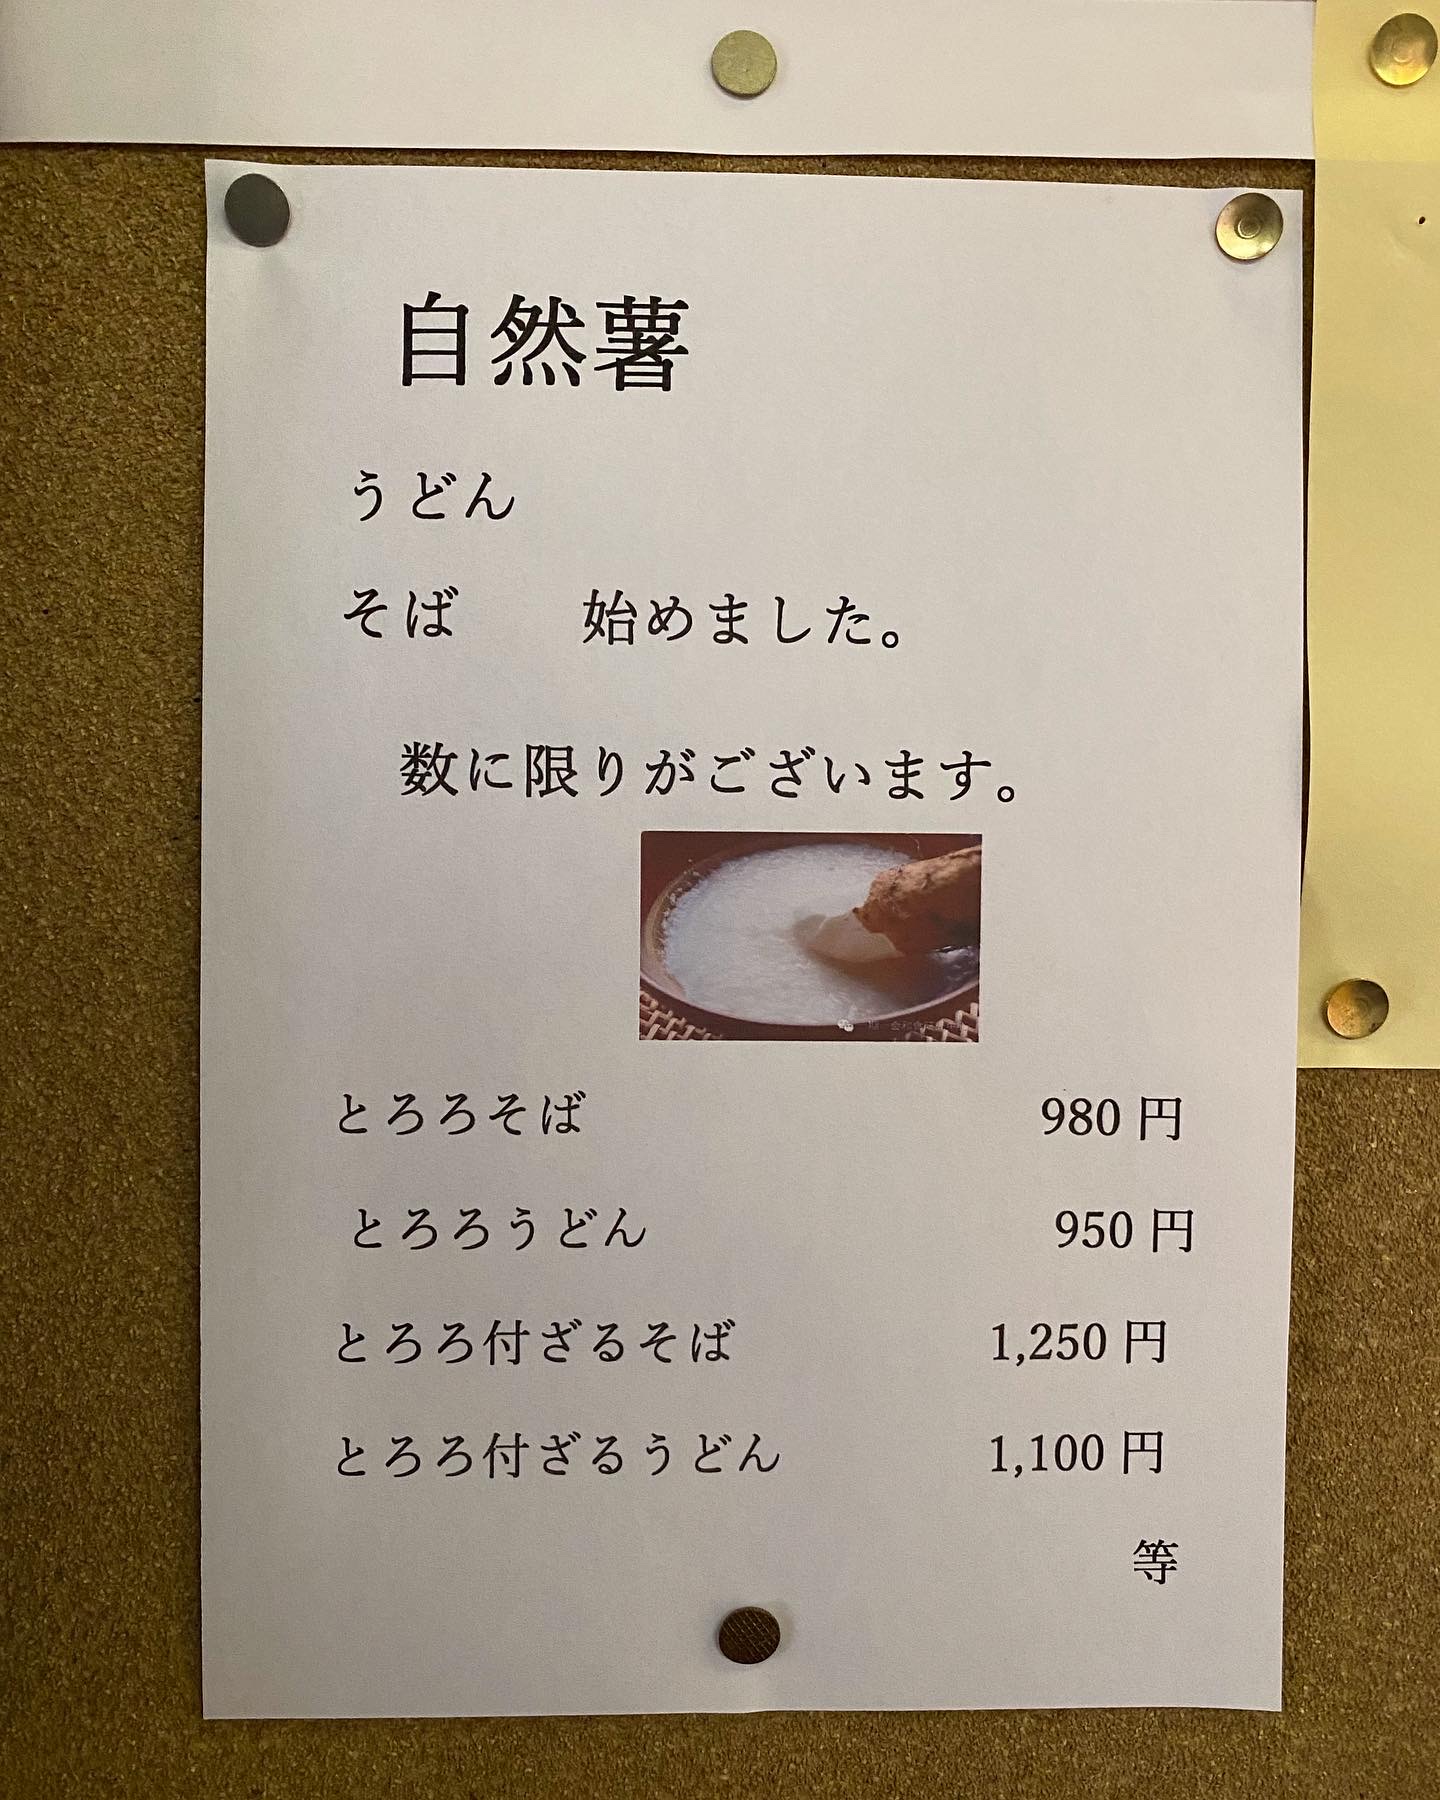 自然薯
うどん
そば　　始めました。
数に限りがございます。
とろろそば　　980 円
とろろうどん　　950 円
とろろ付ざるそば　　1,250 円
とろろ付ざるうどん　　1,100 円
等